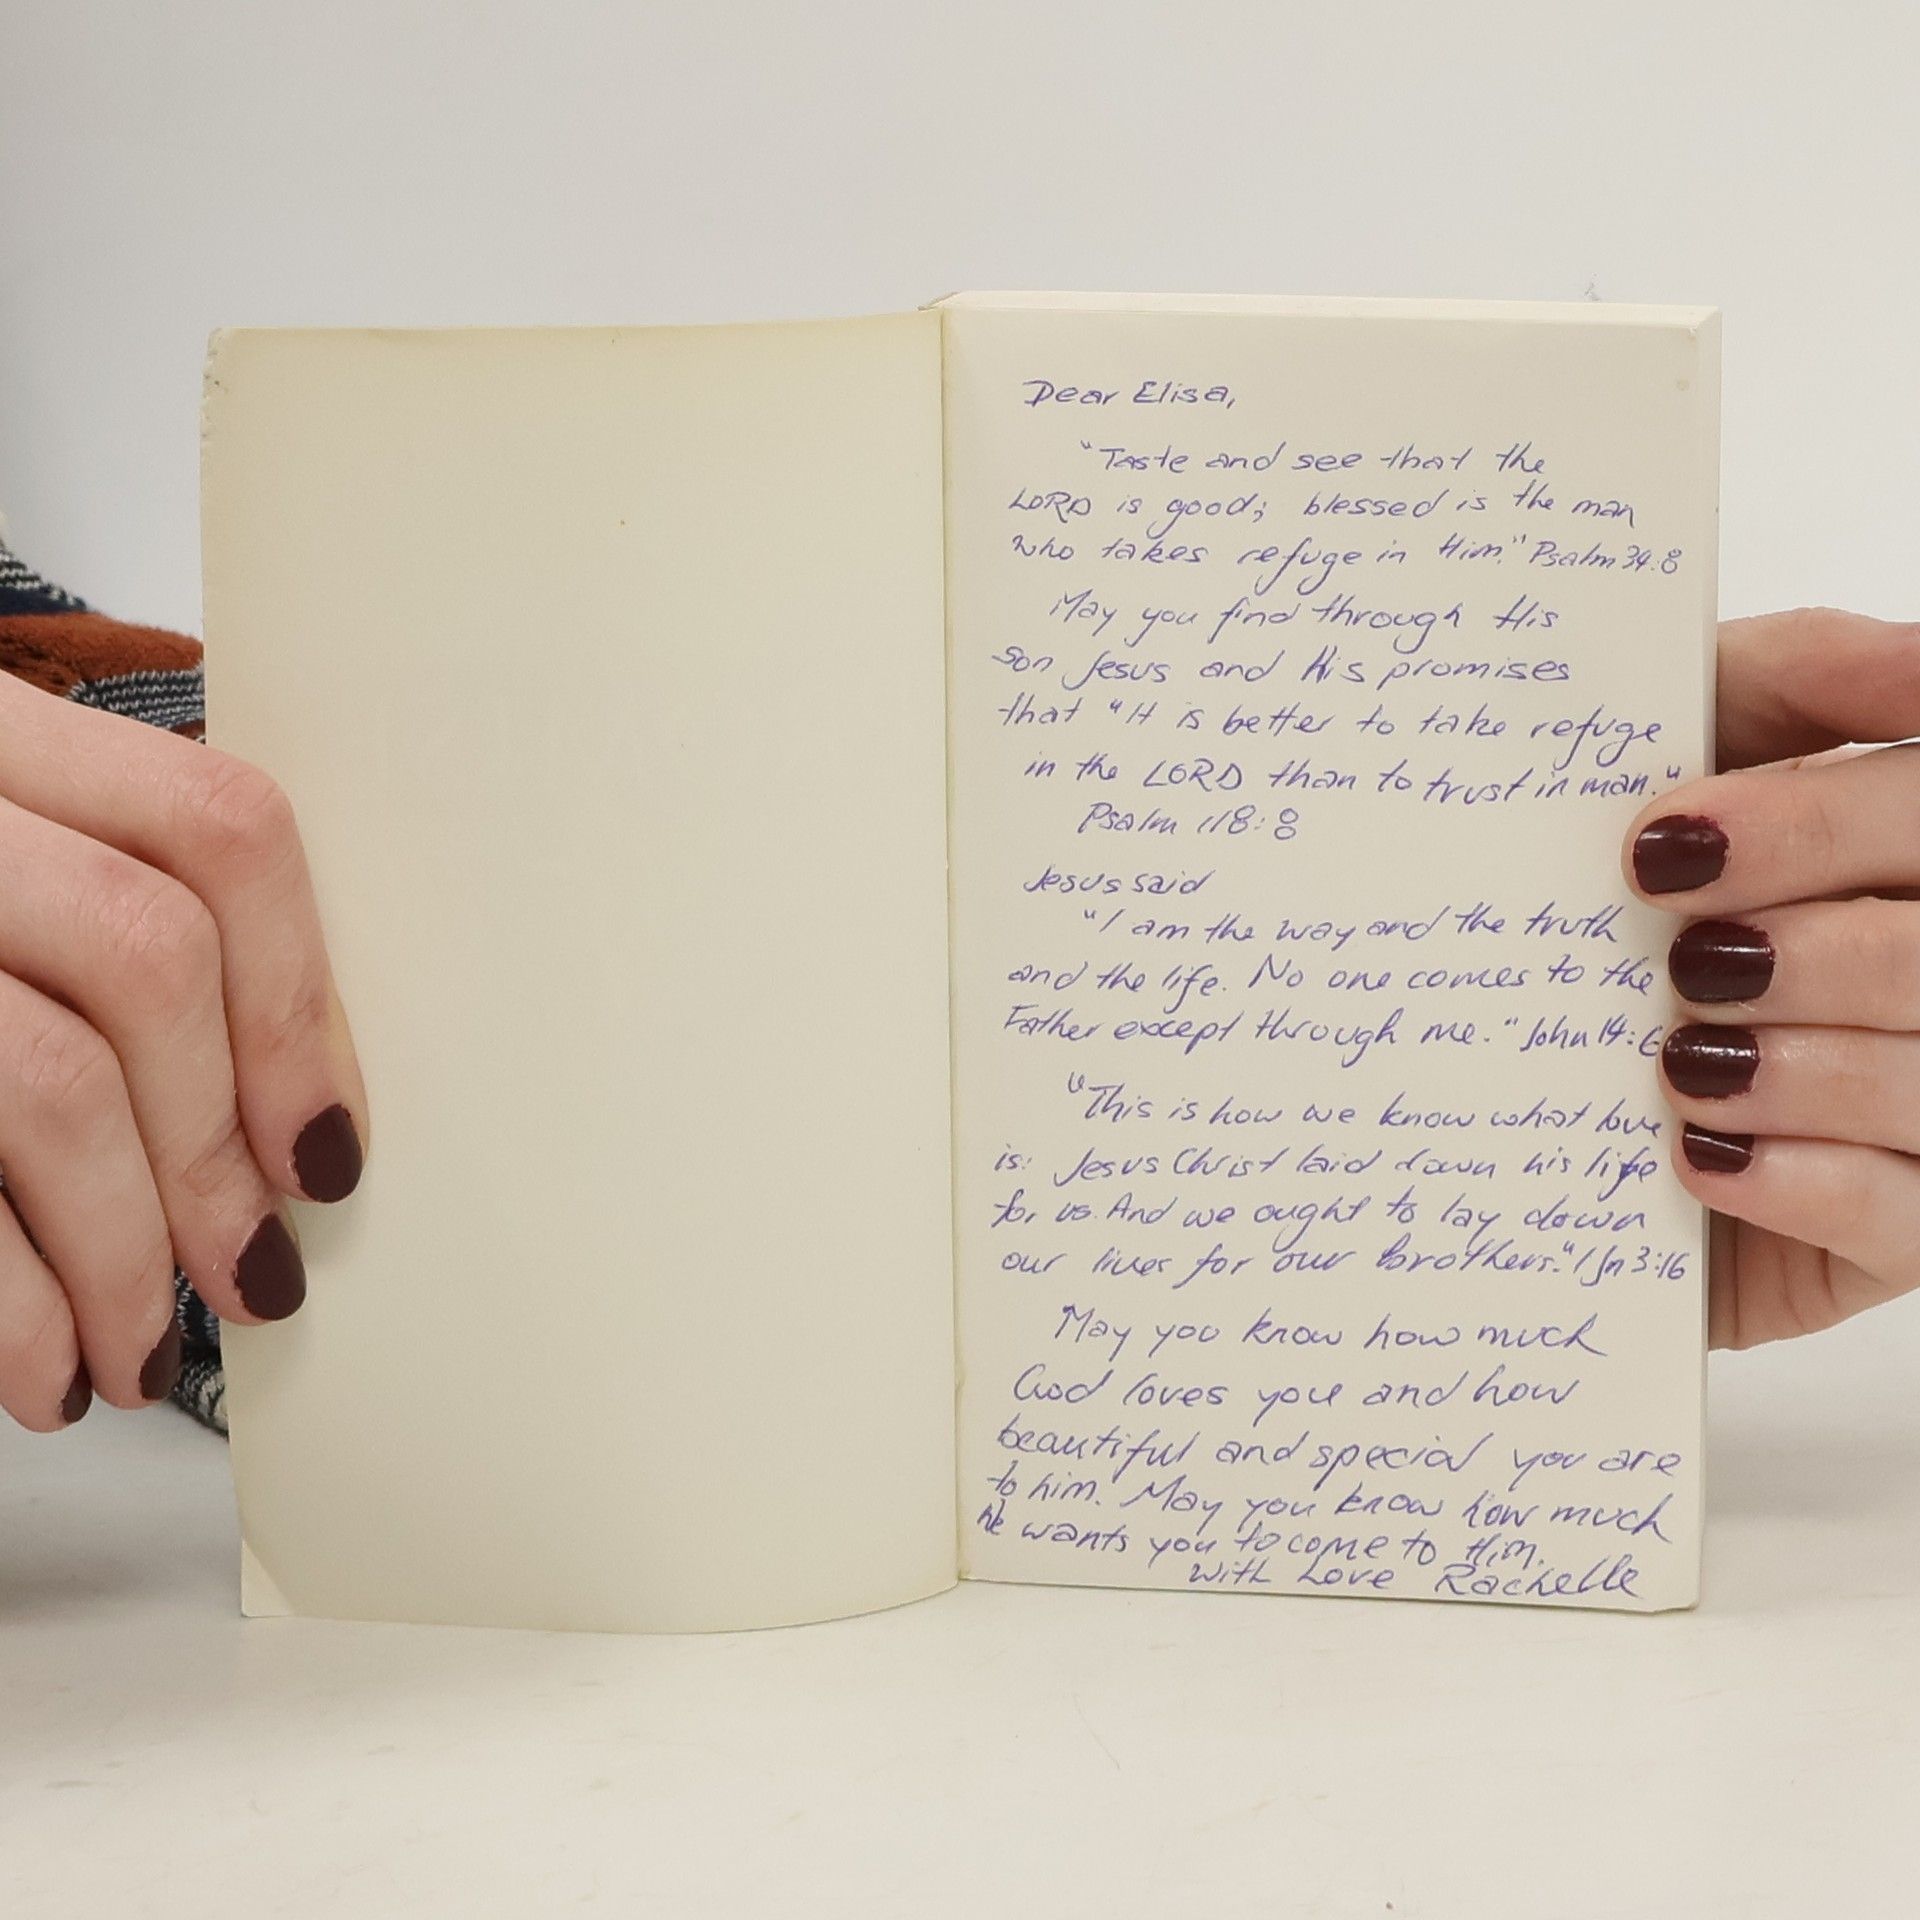 Dear Elisa,
"Taste and see that the
LORD is good; blessed is the man
who takes refuge in Him." Psalm 34:8
May you find through His
son Jesus and His promises
that "It is better to take refuge
in the LORD than to trust in man."
Psalm 118:8
Jesus said
"I am the way and the truth
and the life. No one comes to the
Father except through me." John 14:6
"This is how we know what love
is: Jesus Christ laid down his life
for us. And we ought to lay down
our lives for our brothers." 1 Jn 3:16
May you know how much
God loves you and how
beautiful and special you are
to him. May you know how much
he wants you to come to Him.
With Love Rachelle